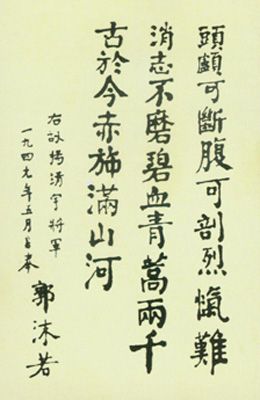 頭顱可斷腹可剖烈愾難
消志不磨碧血青蒿兩千
古於今赤旆滿山河
右故楊靖宇將軍
一九四九年五月
郭沫若